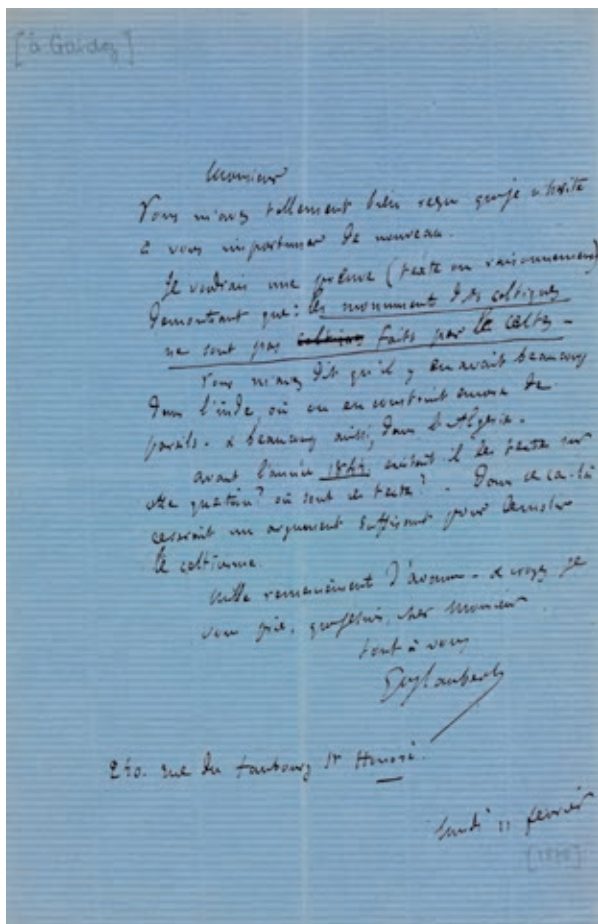 [à Gaidoz]
Monsieur
Vous m'avez tellement bien reçu que je n'hésite
à vous importuner de nouveau.
Je voudrais une preuve (texte ou raisonnement)
Démontrant que: les monuments dits celtiques
ne sont pas celtiques faits par les celtes –
Vous m'avez dit qu'il y en avait beaucoup
Dans l'inde, où on en construit encore de
pareils. & beaucoup aussi, dans l'Algérie.
avant l'année existait il des textes sur
cette question? où sont ces textes? – Dans ce cas-là
ce serait un argument suffisant pour démolir
le celticisme.
mille remerciements d'avance – & croyez je
vous prie, que je suis, cher Monsieur
tout à vous
GveFlaubert
240. rue du faubourg St Honoré.
lundi 11 février
[1878]